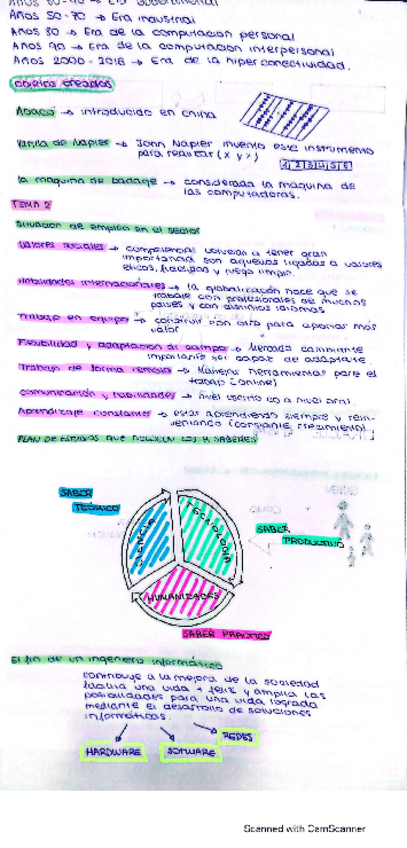 Años 50-70 → Era industrial
Años 80 → Era de la computacion personal
Años 90 → Era de la computacion interpersonal
Años 2000 - 2018 → Era de la hiperconectividad.
objetos creados
Abaco → introducido en china
Varilla de Napier → John Napier invento este instrumento
para realizar (x y ÷)
1 2 3 4 5 6
la maquina de badage → considerada la maquina de
las computadoras.
TEMA 2
Situacion de empleo en el sector
Valores sociales → competencias volveran a tener gran
importancia son aquellas ligadas a valores
eticos, y juego limpio.
Habilidades internacionales → la globalización hace que se
trabaje con profesionales de muchos
paises y con distintos idiomas
Trabajo en equipo → construir con otro para aportar más
valor
Flexibilidad y adaptacion al campo → Mercado cambiante
importante ser capaz de adaptarte.
Trabajo de forma remota → Manejar herramientas para el
trabajo (online)
comunicación y habilidades → nivel escrito y a nivel oral.
Aprendizaje constante → estar aprendiendo siempre y rein-
ventando (constante crecimiento).
PLAN DE ESTUDIOS QUE INCLUYEN LOS 4 SABERES
SABER
TEÓRICO
CIENCIA
TECNOLOGIA
SABER
PRODUCTIVO
HUMANIDADES
SABER PRACTICO
El fin de un ingeniero informático
contribuye a la mejora de la sociedad
facilita una vida + feliz y amplia las
posibilidades para una vida lograda
mediante el desarrollo de soluciones
informáticas.
REDES
HARDWARE
SOFTWARE
Scanned with CamScanner